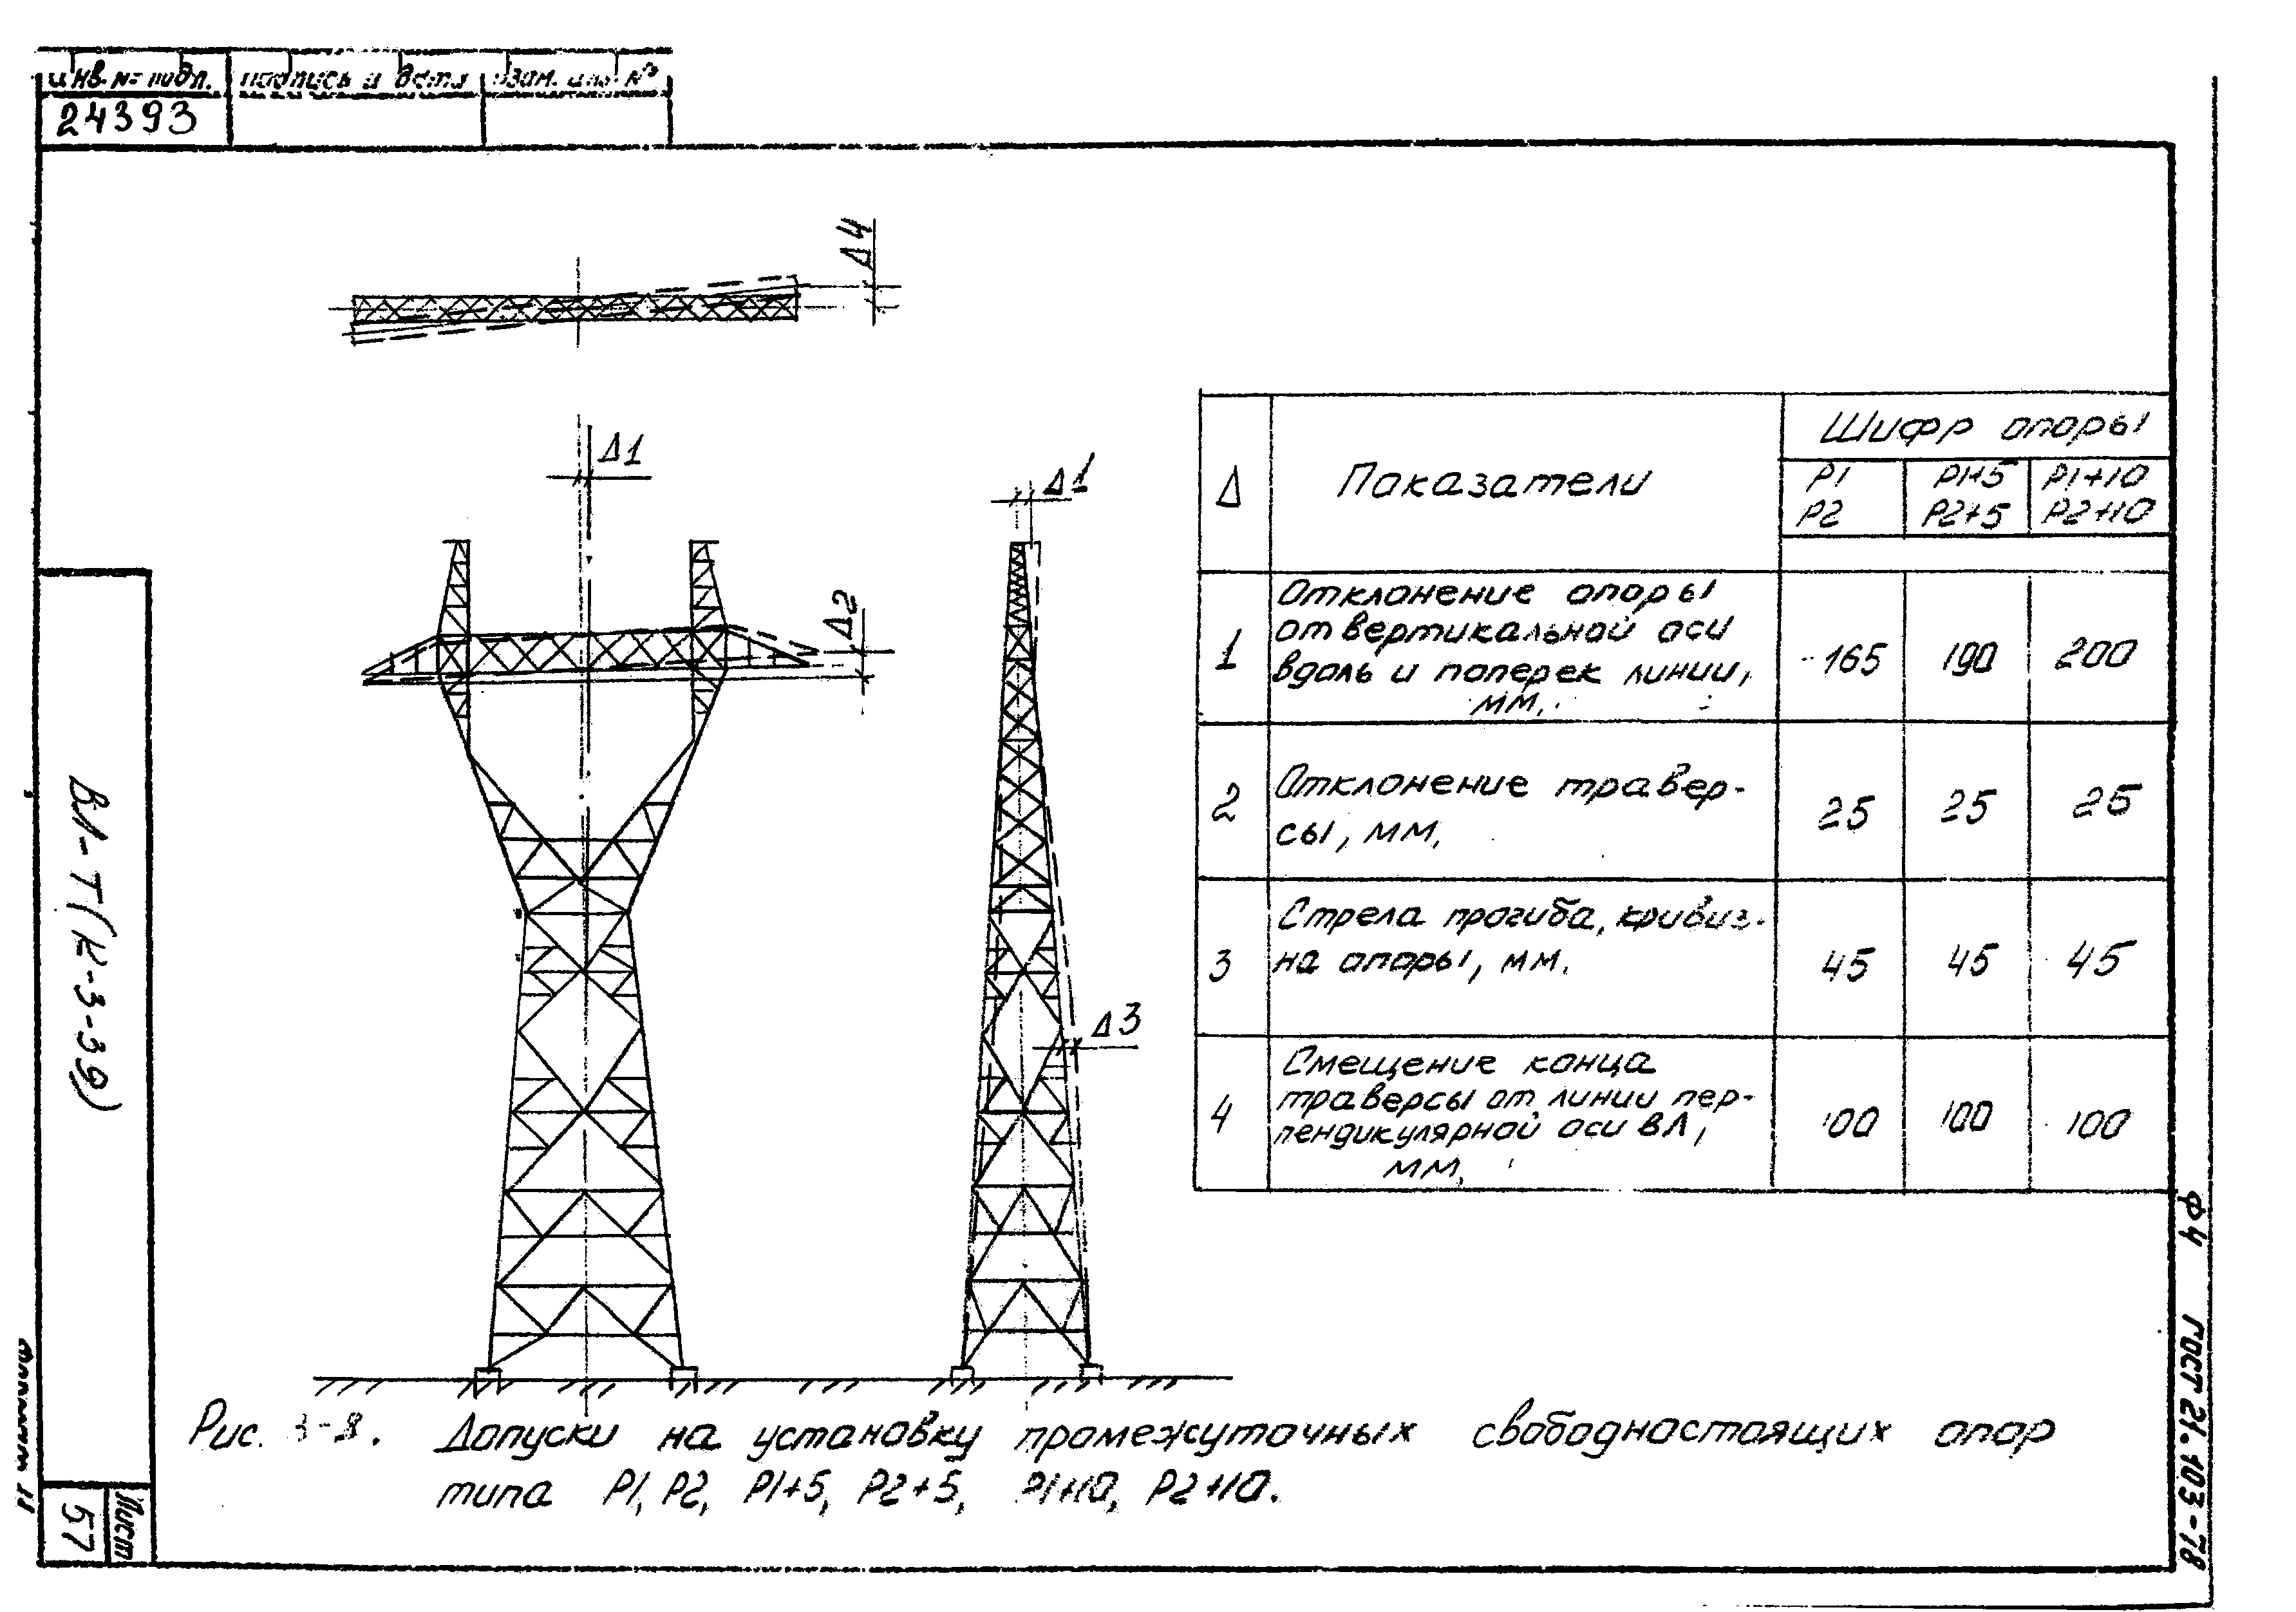 инв. № подл.
подпись и дата
взам. инв. №
24393
Δ4
Δ1
Δ2
Δ1
Δ3
Δ
Показатели
Шифр опоры
Р1
Р2
Р1+5
Р2+5
Р1+10
Р2+10
1
Отклонение опоры
от вертикальной оси
вдоль и поперек линии,
мм.
165
190
200
2
Отклонение травер-
сы, мм.
25
25
25
3
Стрела прогиба, кривиз-
на опоры, мм.
45
45
45
4
Смещение конца
траверсы от линии пер-
пендикулярной оси ВЛ,
мм.
100
100
100
Рис. 3-8. Допуски на установку промежуточных свободностоящих опор
типа Р1, Р2, Р1+5, Р2+5, Р1+10, Р2+10.
ВЛ-Т(К-3-39)
Лист
57
Формат 11
Ф4 ГОСТ 21.103-78